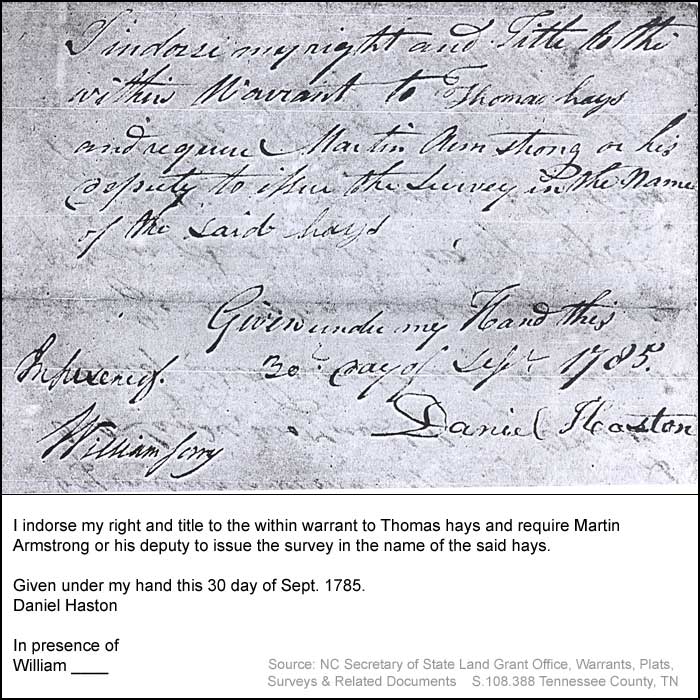 I indorse my right and Title to the
within Warrant to Thomas hays
and require Martin Armstrong or his
deputy to issue the Survey in the Name
of the said hays
Given under my Hand this
In presence of. 30th day of Sept 1785.
Daniel Haston
William
I indorse my right and title to the within warrant to Thomas hays and require Martin
Armstrong or his deputy to issue the survey in the name of the said hays.
Given under my hand this 30 day of Sept. 1785.
Daniel Haston
In presence of
William ____
Source: NC Secretary of State Land Grant Office, Warrants, Plats,
Surveys & Related Documents S.108.388 Tennessee County, TN